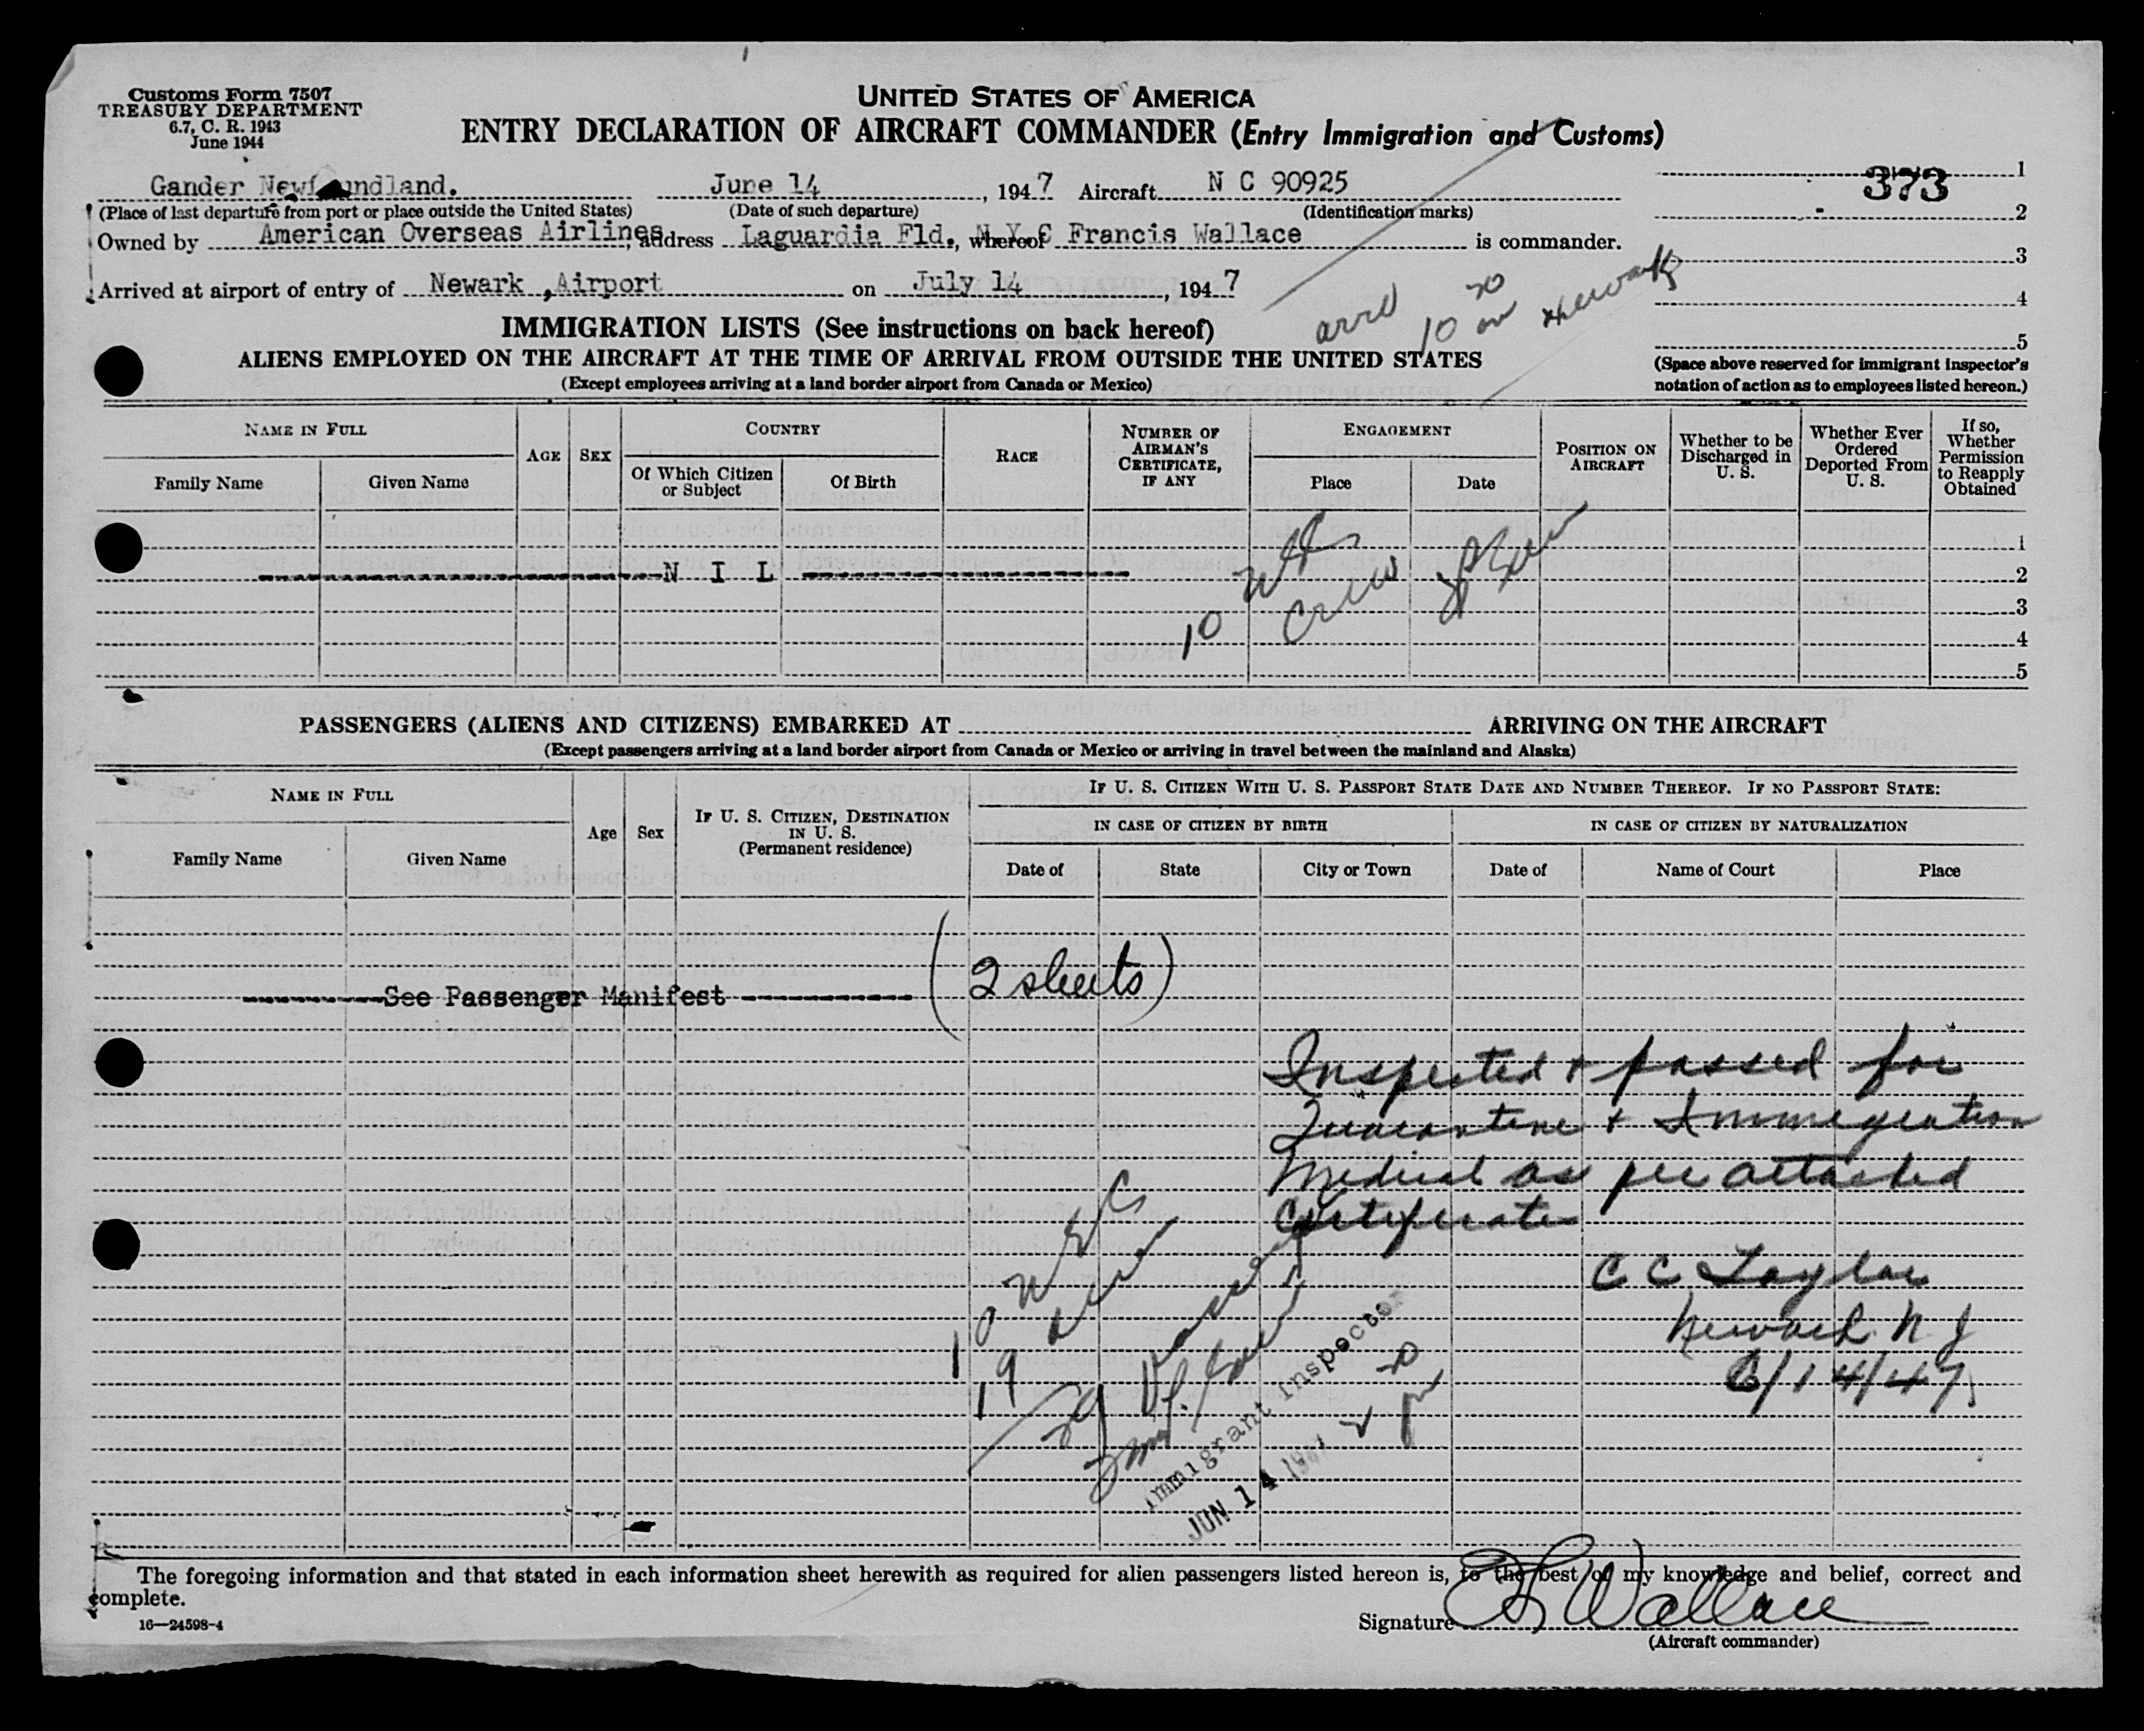 Customs Form 7507
TREASURY DEPARTMENT
6.7, C. R. 1943
June 1944
UNITED STATES OF AMERICA
ENTRY DECLARATION OF AIRCRAFT COMMANDER (Entry Immigration and Customs)
373
Gander Newfoundland. June 14, 1947 Aircraft N C 90925
(Place of last departure from port or place outside the United States) (Date of such departure) (Identification marks)
Owned by American Overseas Airlines, address Laguardia Fld., N.Y.C whereof Francis Wallace is commander.
Arrived at airport of entry of Newark ,Airport on July 14, 1947
arrd 10 20 Newark
1
2
3
4
5
(Space above reserved for immigrant inspector's
notation of action as to employees listed hereon.)
IMMIGRATION LISTS (See instructions on back hereof)
ALIENS EMPLOYED ON THE AIRCRAFT AT THE TIME OF ARRIVAL FROM OUTSIDE THE UNITED STATES
(Except employees arriving at a land border airport from Canada or Mexico)
NAME IN FULL
Family Name
Given Name
AGE
SEX
COUNTRY
Of Which Citizen
or Subject
Of Birth
RACE
NUMBER OF
AIRMAN'S
CERTIFICATE,
IF ANY
ENGAGEMENT
Place
Date
POSITION ON
AIRCRAFT
Whether to be
Discharged in
U. S.
Whether Ever
Ordered
Deported From
U. S.
If so,
Whether
Permission
to Reapply
Obtained
N I L
10 Crew
1
2
3
4
5
PASSENGERS (ALIENS AND CITIZENS) EMBARKED AT ARRIVING ON THE AIRCRAFT
(Except passengers arriving at a land border airport from Canada or Mexico or arriving in travel between the mainland and Alaska)
NAME IN FULL
Family Name
Given Name
Age
Sex
IF U. S. CITIZEN, DESTINATION
IN U. S.
(Permanent residence)
IF U. S. CITIZEN WITH U. S. PASSPORT STATE DATE AND NUMBER THEREOF. IF NO PASSPORT STATE:
IN CASE OF CITIZEN BY BIRTH
Date of
State
City or Town
IN CASE OF CITIZEN BY NATURALIZATION
Date of
Name of Court
Place
See Passenger Manifest (2 sheets)
Inspected + passed for
Quarantine + Immigration
Medical as per attached
Certificate
C C Taylor
Newark N J
6/14/47
10
19
29
Immigrant Inspector
JUN 14 1947
The foregoing information and that stated in each information sheet herewith as required for alien passengers listed hereon is, to the best of my knowledge and belief, correct and
complete.
16—24598-4
Signature Wallace
(Aircraft commander)